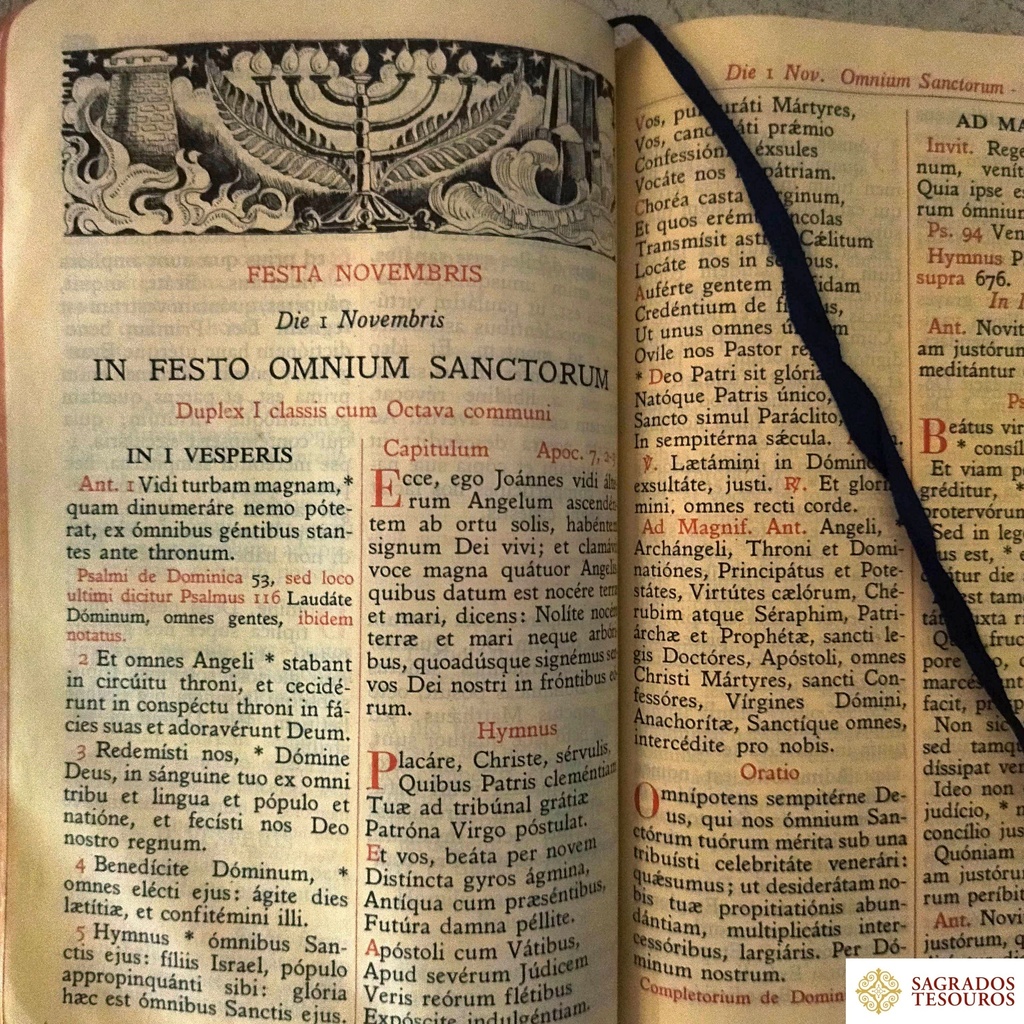 FESTA NOVEMBRIS
Die 1 Novembris
IN FESTO OMNIUM SANCTORUM
Duplex I classis cum Octava communi
IN I VESPERIS
Ant. 1 Vidi turbam magnam, *
quam dinumeráre nemo póte-
rat, ex ómnibus géntibus stan-
tes ante thronum.
Psalmi de Dominica 53, sed loco
ultimi dicitur Psalmus 116 Laudáte
Dóminum, omnes gentes, ibidem
notatus.
2 Et omnes Angeli * stabant
in circúitu throni, et cecidé-
runt in conspéctu throni in fá-
cies suas et adoravérunt Deum.
3 Redemísti nos, * Dómine
Deus, in sánguine tuo ex omni
tribu et lingua et pópulo et
natióne, et fecísti nos Deo
nostro regnum.
4 Benedícite Dóminum, *
omnes elécti ejus: ágite dies
lætítiæ, et confitémini illi.
5 Hymnus * ómnibus San-
ctis ejus: fíliis Israel, pópulo
appropinquánti sibi: glória
hæc est ómnibus Sanctis ejus.
Capitulum Apoc. 7,
Ecce, ego Joánnes vidi
rum Angelum
tem ab ortu solis, habéntem
signum Dei vivi; et
voce magna quátuor Angelis
quibus datum est nocére terræ
et mari, dicens: Nolíte nocére
terræ et mari neque
bus, quoadúsque signémus
vos Dei nostri in fróntibus
rum.
Hymnus
Placáre, Christe, sérvulis,
Quibus Patris cleméntiam
Tuæ ad tribúnal grátiæ
Patróna Virgo póstulat.
Et vos, beáta per novem
Distíncta gyros ágmina,
Antíqua cum præséntibus,
Futúra damna péllite.
Apóstoli cum Vátibus,
Apud sevérum Júdicem
Veris reórum flétibus
Expóscite indulgéntiam.
Die 1 Nov. Omnium Sanctorum -
Vos, Mártyres,
Vos, præmio
éxsules
Vocáte nos pátriam.
Choréa casta
Et quos
Transmísit Cælitum
Locáte nos in
Auférte gentem
Credéntium de
Ut unus omnes
Ovíle nos Pastor
* Deo Patri sit glória
Natóque Patris único,
Sancto simul Paráclito,
In sempitérna sæcula.
℣. Lætámini in Dómino
exsultáte, justi. ℟. Et
mini, omnes recti corde.
Ad Magnif. Ant. Angeli, *
Archángeli, Throni et Domi-
natiónes, Principátus et Pote-
státes, Virtútes cælórum, Ché-
rubim atque Séraphim, Patri-
árchæ et Prophétæ, sancti le-
gis Doctóres, Apóstoli, omnes
Christi Mártyres, sancti Con-
fessóres, Vírgines Dómini,
Anachorítæ, Sanctíque omnes,
intercédite pro nobis.
Oratio
Omnípotens sempitérne De-
us, qui nos ómnium San-
ctórum tuórum mérita sub una
tribuísti celebritáte venerári:
quǽsumus; ut desiderátam no-
bis tuæ propitiatiónis abun-
dántiam, multiplicátis inter-
cessóribus, largiáris. Per Dó-
minum nostrum.
Completorium de Domin
AD MA
Invit. Rege
num, vení
Quia ipse e
rum ómniu
Ps. 94 Ven
Hymnus P
supra 676.
In
Ant. Novit
am justóru
meditántur
Ps
Beátus vir
* consíl
Et viam p
gréditur, *
Sed in lege
est, *
die
est tam
Non
sed tamqu
díssipat ven
Ideo non
judício, *
concílio jus
Quóniam
am justóru
rum períbit
Ant. Novi
justórum, q
SAGRADOS
TESOUROS